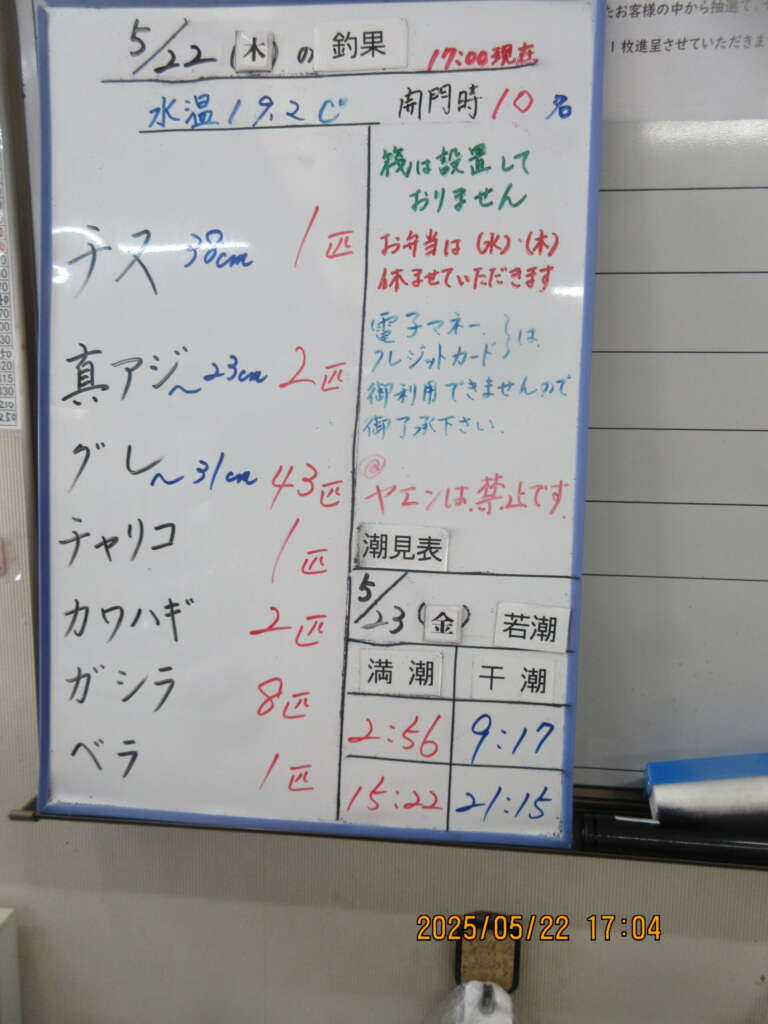 5/22 (木) の 釣果 17:00現在
水温 19.2 C° 開門時 10名
チヌ 38cm 1匹
真アジ ~23cm 2匹
グレ ~31cm 43匹
チャリコ 1匹
カワハギ 2匹
ガシラ 8匹
ベラ 1匹
筏は設置して
おりません
お弁当は(水)・(木)
休ませていただきます
電子マネー
クレジットカード は
御利用できませんので
御了承下さい.
@
ヤエンは禁止です
潮見表
5/23 (金) 若潮
満潮 干潮
2:56 9:17
15:22 21:15
たお客様の中から抽選で、
1枚進呈させていただきま
2025/05/22 17:04